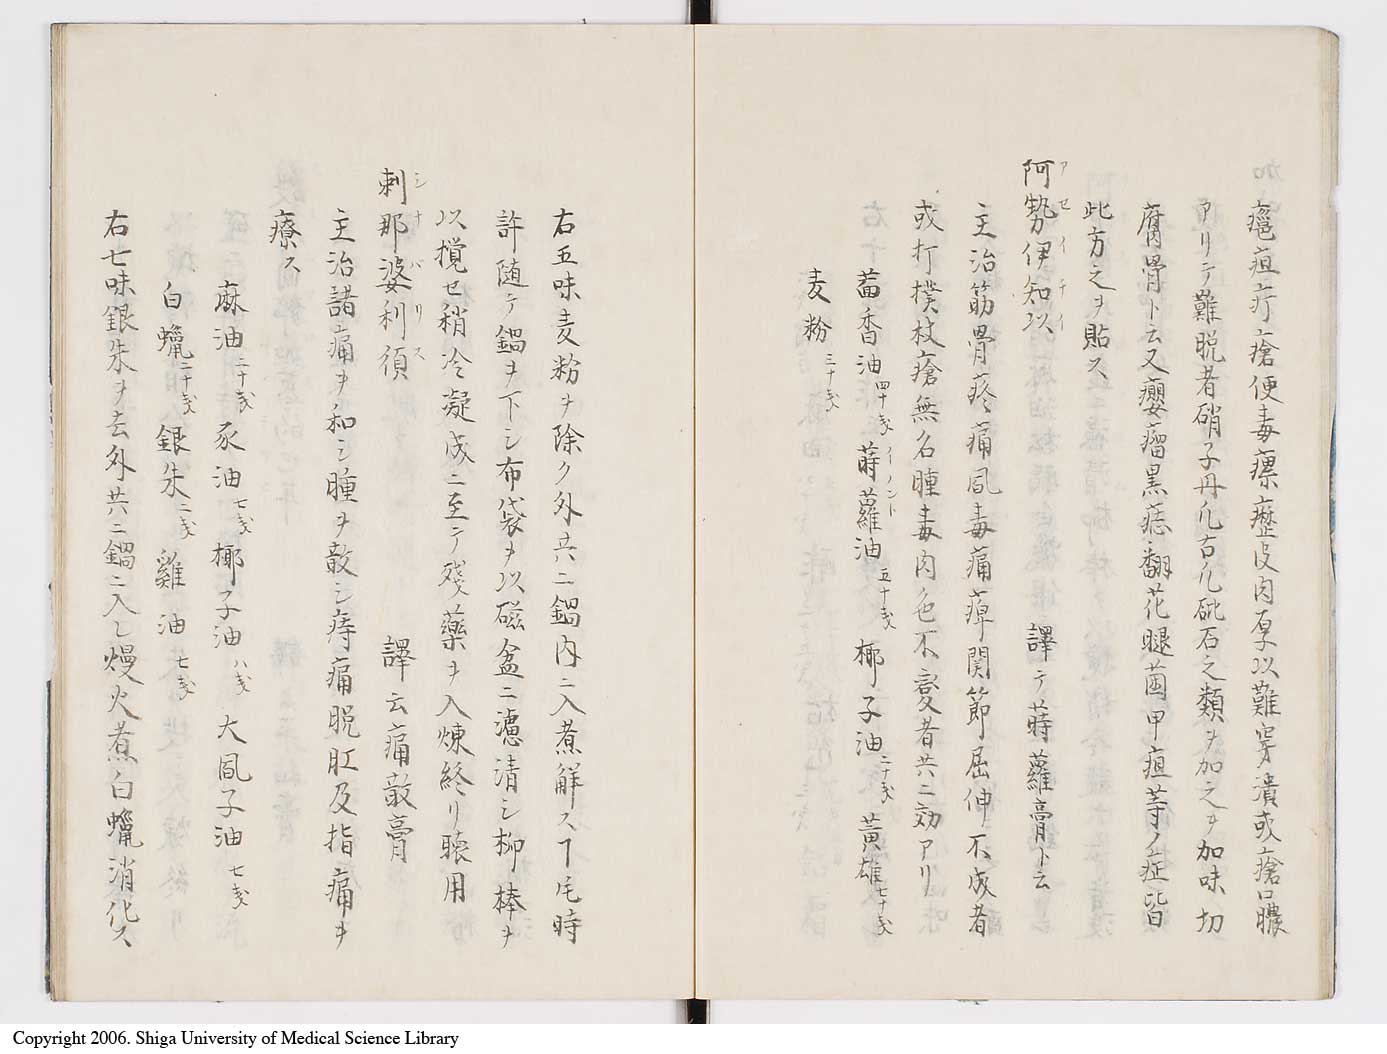 瘡疽疔瘡便毒瘰癧皮肉厚以難穿潰或瘡口膿
アリテ難脱者硝子丹凢右凢砒石之類ヲ加之ヲ加味切
腐骨ト云又癭瘤黒痣翻花腿菌甲疽等ノ症皆
此方之ヲ貼ス
阿勢伊知以 譯テ蒔蘿膏ト云
アセイチイ
主治筋骨疼痛風毒痛痺関節屈伸不成者
或打撲杖瘡無名腫毒肉色不変者共ニ効アリ
茴香油四十戔 蒔蘿油五十戔 椰子油二十戔 黄雄七十戔
イノント
麦粉三十戔
右五味麦粉ヲ除ク外共ニ鍋内ニ入煮解スヿ凢時
許随テ鍋ヲ下シ布袋ヲ以磁盆ニ濾清シ柳棒ヲ
以攪セ稍冷凝成ニ至テ残薬ヲ入煉終リ聴用
刺那婆利須 譯云痛散膏
シナバリス
主治諸痛ヲ和シ腫ヲ散シ痔痛脱肛及指痛ヲ
療ス
麻油二十戔 豕油七戔 椰子油八戔 大風子油七戔
白蠟二十戔 銀朱二戔 雞油七戔
右七味銀朱ヲ去外共ニ鍋ニ入レ熳火煮白蠟消化ス
Copyright 2006. Shiga University of Medical Science Library